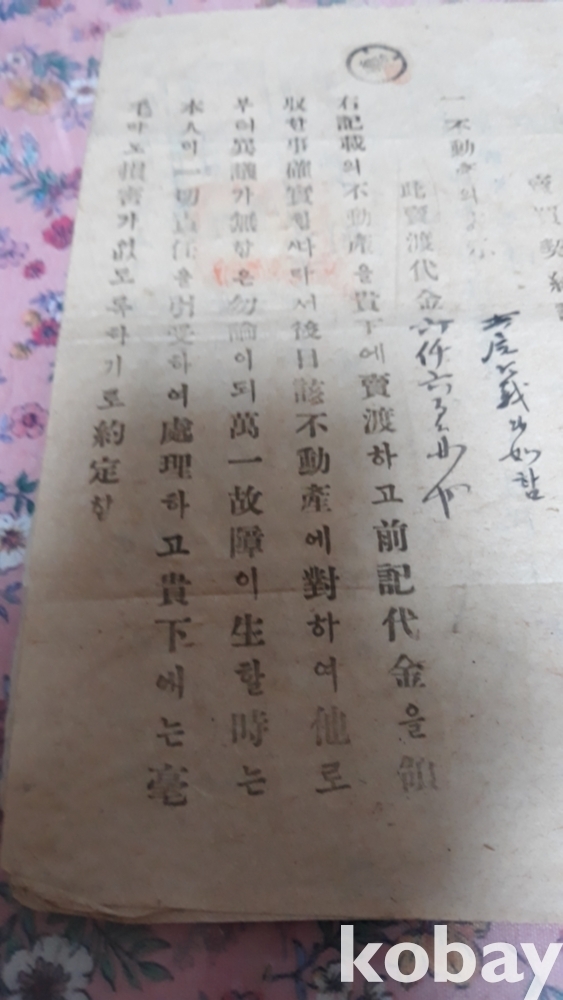 賣買契約書
一 不動産의
如함
此賣渡代金
右記載의不動產을貴下에賣渡하고前記代金을領
收한事確實힘따라서後日該不動產에對하여他로
부터異議가無함은勿論이되萬一故障이生할時는
本人이一切責任을負하여處理하고貴下에는毫
毛라도損害가없도록하기로約定함
kobay